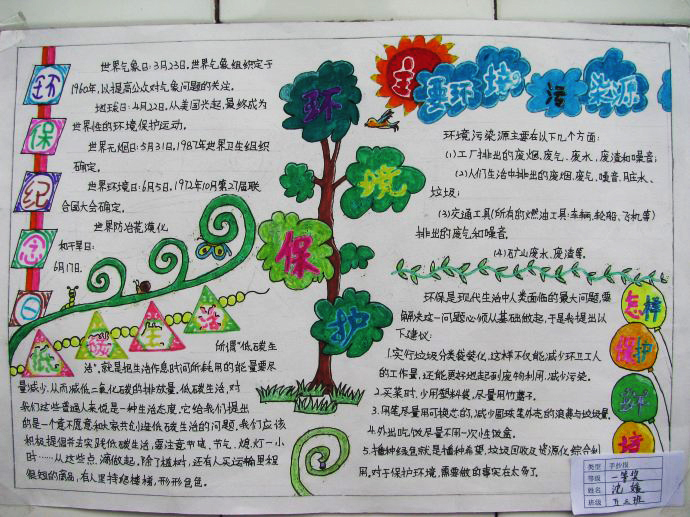 环
保
纪
念
日
世界气象日:3月23日,世界气象组织定于
1960年,以提高公众对气象问题的关注。
地球日:4月22日,从美国兴起,最终成为
世界性的环境保护运动。
世界无烟日:5月31日,1987年世界卫生组织
确定。
世界环境日:6月5日,1972年10月第27届联
合国大会确定。
世界防治荒漠化
和干旱日:
6月17日。
低
碳
生
活
所谓“低碳生
活”,就是把生活作息时间所耗用的能量要尽
量减少,从而减低二氧化碳的排放量。低碳生活,对
我们这些普通人来说是一种生活态度,它给我们提出
的是一个愿不愿意和大家共创造低碳生活的问题。我们应该
积极提倡并去实践低碳生活,要注意节电、节气、熄灯一小
时……从这些点滴做起。除了植树,还有人买运输里程
很短的商品,有人坚持爬楼梯,形形色色。
环
境
保
护
主要环境污染源
环境污染源主要有以下几个方面:
(1)工厂排出的废烟、废气、废水、废渣和噪音;
(2)人们生活中排出的废烟、废气、噪音、脏水、
垃圾;
(3)交通工具(所有的燃油工具:车辆、轮船、飞机等)
排出的废气和噪音。
(4)矿山废水、废渣等。
怎样
保护
环
境
环保是现代生活中人类面临的最大问题,要
解决这一问题必须从基础做起,于是我提出以
下建议:
1.实行垃圾分类袋装化,这样不仅能减少环卫工人
的工作量,还能更好地起到废物利用,减少污染。
2.买菜时,少用塑料袋,尽量用竹篮子。
3.用笔尽量用可换芯的,减少圆珠笔外壳的浪费与垃圾量。
4.外出吃饭尽量不用一次性饭盒。
5.播种绿色就是播种希望,垃圾回收及资源化综合利
用。对于保护环境,需要做的事实在太多了。
类型 手抄报
等级 一等奖
姓名 沈媛
班级 五三班